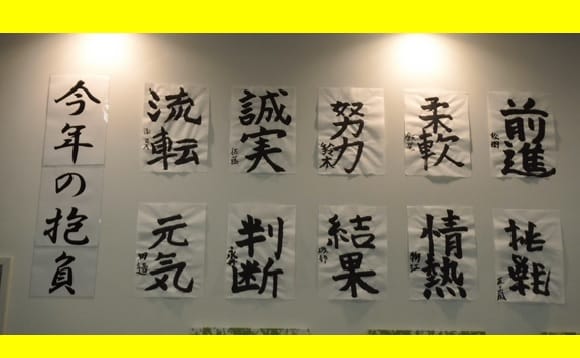 今年の抱負
流転
誠実
佐藤
努力
鈴木
柔軟
前進
元気
判断
結果
情熱
挑戦